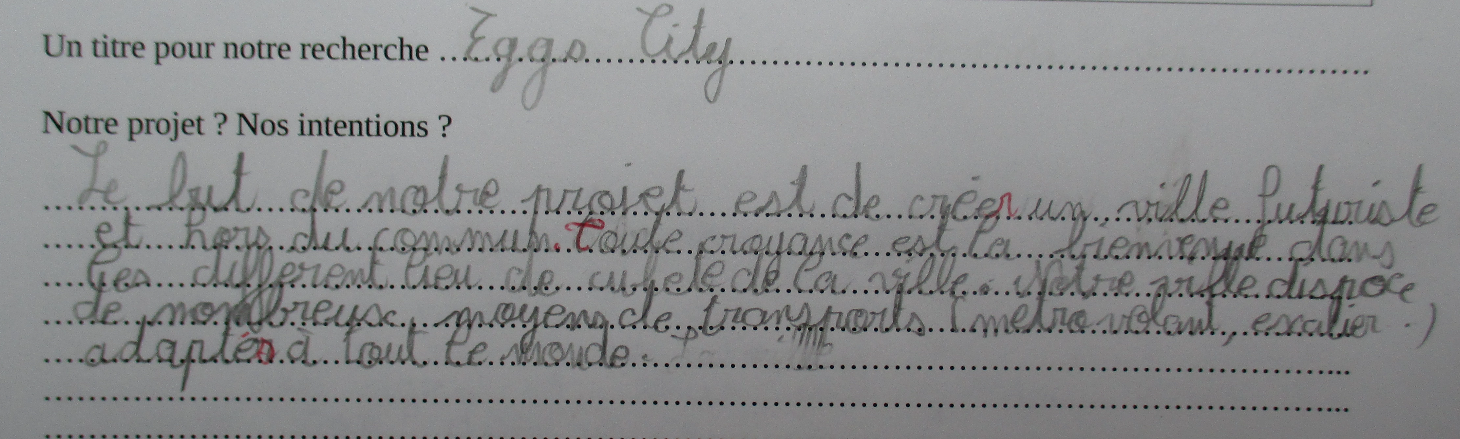 Un titre pour notre recherche Eggs City
Notre projet ? Nos intentions ?
Le but de notre projet est de créer un ville futuriste
et hors du commun. Toute croyance est la bienvenue dans
les different lieu de culte de la ville. Notre ville dispose
de nombreux moyens de transports (métro volant, escalier.)
adaptés à tout le monde.